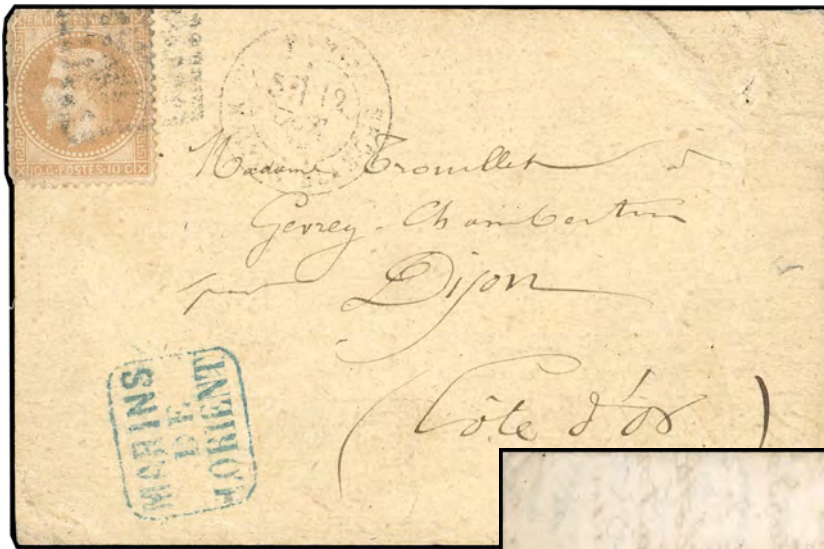 10 C·POSTES·10 C
12
Madame Trouillet à
Gevrey-Chambertin
par Dijon
(Côte d'Or)
MARINS
DE
LORIENT